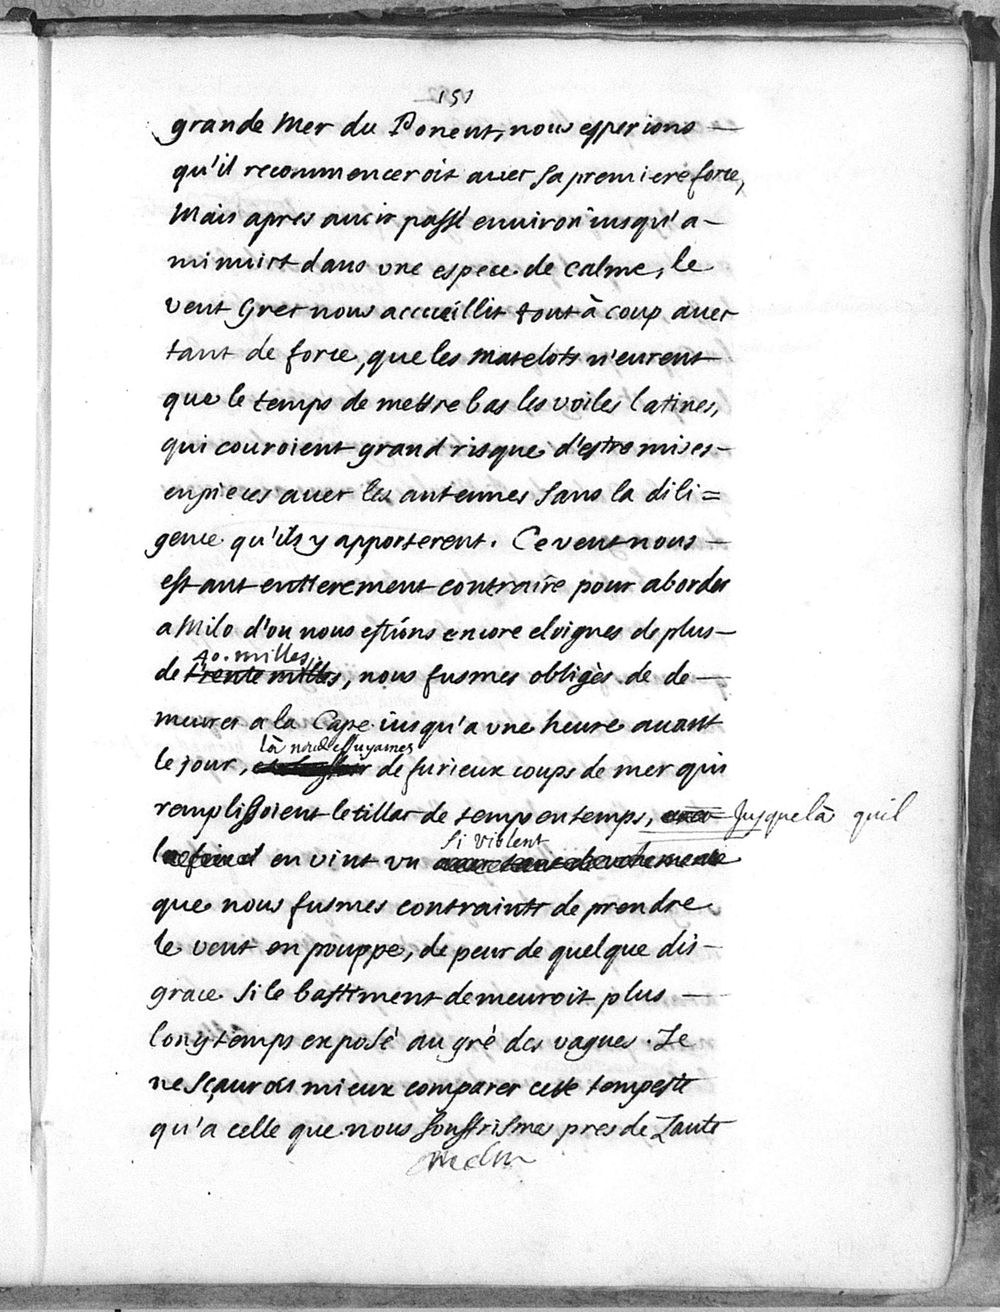 151
grande Mer du Ponent, nous esperions
qu'il recommenceroit avec sa premiere force,
Mais apres avoir passé environ iusqu'a
minuict dans une espece de calme, le
vent Grec nous accueillit tout à coup avec
tant de force, que les matelots n'eurent
que le temps de mettre bas les voiles latines,
qui couroient grand risque d'estre mises
en pieces avec les antennes sans la dili=
gence qu'ils y apporterent. Ce vent nous
estant entierement contraire pour aborder
a Milo d'ou nous estions encore eloignes de plus
40. milles,
de trente milles, nous fusmes obligés de de
meurer a la Cape iusqu'a une heure avant
là nous essuyames
le jour, de furieux coups de mer qui
remplissoient le tillac de temps en temps, Jusque là quil
si violent
en vint un
que nous fusmes contraints de prendre
le vent en pouppe, de peur de quelque dis
grace si le bastiment demeuroit plus
longtemps exposé au gré des vagues. Je
ne sçaurois mieux comparer cette tempeste
qu'a celle que nous souffrismes pres de Zante